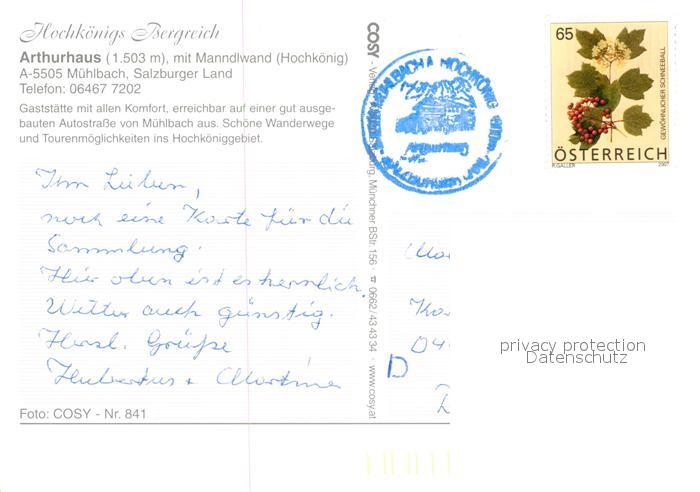 Hochkönigs Bergreich
Arthurhaus (1.503 m), mit Manndlwand (Hochkönig)
A-5505 Mühlbach, Salzburger Land
Telefon: 06467 7202
Gaststätte mit allen Komfort, erreichbar auf einer gut ausge-
bauten Autostraße von Mühlbach aus. Schöne Wanderwege
und Tourenmöglichkeiten ins Hochköniggebiet.
Ihr Lieben,
noch eine Karte für die
Sammlung.
Hier oben ist es herrlich.
Wetter auch günstig.
Herzl. Grüße
Hubertus + Martina
Foto: COSY - Nr. 841
COSY
Münchner BStr. 156 · 0662/43 43 34 · www.cosy.at
MÜHLBACH A HOCHKÖNIG
Arthurhaus
65
GEWÖHNLICHER SCHNEEBALL
ÖSTERREICH
R.GALLER 2007
D
privacy protection
Datenschutz